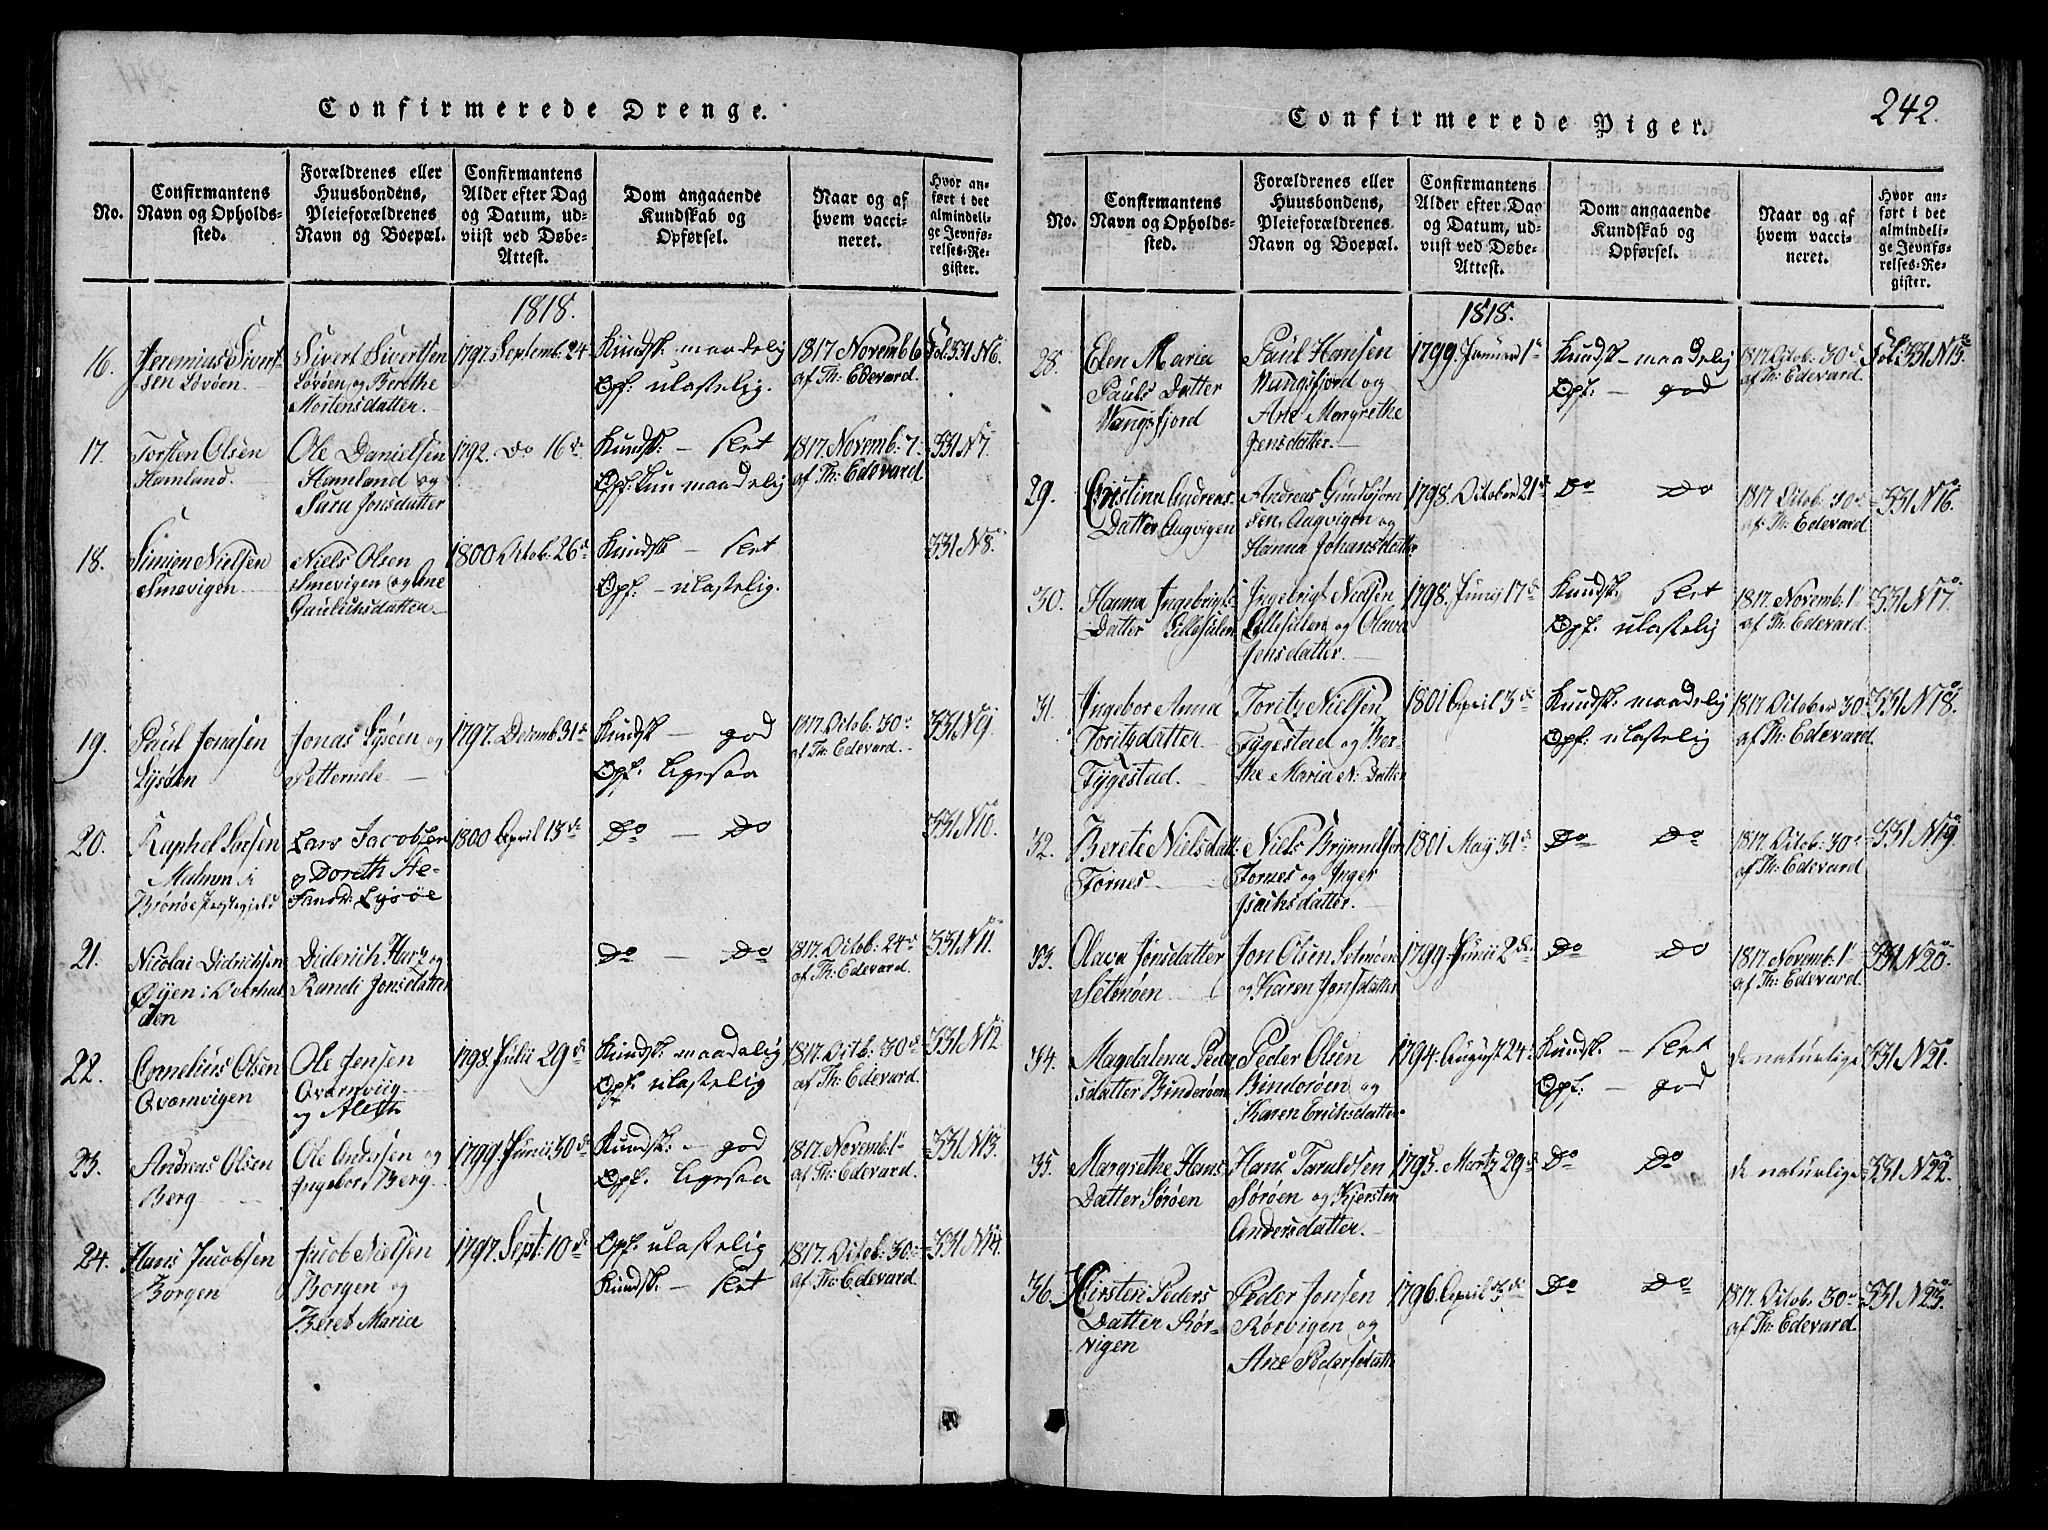 Confirmerede Drenge.
No.
Confirmantens
Navn og Opholds-
sted.
Forældrenes eller
Huusbondens,
Pleieforældrenes
Navn og Boepæl.
Confirmantens
Alder efter Dag
og Datum, ud-
viist ved Døbe-
Attest.
Dom angaaende
Kundskab og
Opførsel.
Naar og af
hvem vacci-
neret.
Hvor an-
ført i det
almindeli-
ge Jevnfø-
relses-Re-
gister.
1818.
16.
Jeremias Sivert-
sen Sørøen
Sivert Sivertsen
Sørøen og Berethe
Mortensdatter.
1797. Septemb. 24
Kundsk. maadelig
Opf. ulastelig.
1817 Novemb 6
af Th: Edevard.
Fol: 331 No 6.
17.
Torsten Olsen
Hamland.
Ole Danielsen
Hamland og
Sara Jonsdatter
1792. Do 16 d.
Kundsk: - slet
Opf. kun maadelig
1817. Novemb: 7
af Th: Edevard
331 No 7.
18.
Simon Nielsen
Smevigen.
Niels Olsen
Smevigen og Ane
1800 Octob: 26 d
Kundsk - slet
Opf: - ulastelig.
331 No 8.
19.
Paul Jonasen
Lysøen
Jonas Lysøen og
Pettemele
1797. Decemb 31 d
Kundsk - god
Opf. ligesaa
1817. Octob: 30 d
af Th: Edevard.
331 No 9.
20.
Raphel Larsen
Malmø i
Brønøe Præstegjeld
Lars Jacobsen
og Doreth He-
Lysøe
1800 April 13 de
Do - Do
331 No 10.
21.
Nicolai Didrichsen
Øijen i Overhal-
den
Diderich Harz og
Randi Jonsdatter
Do - Do
1817. Octob: 24 d
af Th: Edevard.
331 No 11.
22.
Cornelius Olsen
Qvamvigen
Ole Jensen
Qvamviig
og Aleth
1798. Julii 29 d
Kundsk: maadelig
Opf: ulastelig
1817. Octb: 30 d
af Th: Edevard.
331 No 12
23.
Andreas Olsen
Berg
Ole Andersen og
Ingebor Berg.
1799 Junii 30 d
Kundsk: - god
Opf. ligesaa
1817. Novemb: 1
af Th: Edevard.
331 No 13.
24.
Hans Jacobsen
Borgen
Jacob Nielsen
Borgen og
Beret Maria
1797. Sept: 10 d
Opf. ulastelig
Kundsk. - slet
1817. Octob: 30.
af Th: Edevard.
331 No 14.
242.
Confirmerede Piger.
No.
Confirmantens
Navn og Opholds-
sted.
Forældrenes eller
Huusbondens,
Pleieforældrenes
Navn og Boepæl.
Confirmantens
Alder efter Dag
og Datum, ud-
viist ved Døbe-
Attest.
Dom angaaende
Kundskab og
Opførsel.
Naar og af
hvem vacci-
neret.
Hvor an-
ført i det
almindeli-
ge Jevnfø-
relses-Re-
gister.
1818.
28.
Elen Maria
Pauls Datter
Vangsfjord
Paul Hansen
Vangsfjord og
Ane Margrethe
Jensdatter.
1799. Januar 1 d
Kundsk - maadelig
Opf: - god
1817. Octob. 30 d.
af Th: Edevard.
Fol: 331 No 15.
29.
Christina Andreas
Datter Aagvigen
Andreas Gundbjørn
sen, Aagvigen og
Hanna Johansdatter
1798. October 21 d
Do Do
1817 Octob. 30 d.
af Th: Edevard.
331 No 16.
30.
Hanna Ingebrigts
Datter Lillesulen
Ingebrigt Nielsen
Lillesulen og Olava
Jonsdatter.
1798. Junij 17 d
Kundsk. slet
Opf. ulastelig
1817. Novemb. 1
af Th: Edevard.
331 No 17.
31.
Ingebor Anna
Toritzdatter
Tygestad.
Toritz Nielsen
Tygestad og Ber-
the Maria N. Datter
1801 April 3 d
Kundsk: maadelig
Opf: ulastelig
1817 October 30
af Th: Edevard.
331 No 18.
32.
Berete Nielsdatt:
Fornes
Niels Brynnelsen
Fornes og Inger
Isachsdatter.
1801 Maij 31 d
Do Do
1817. Octob: 30 d
af Th: Edevard
331 No 19.
33.
Olava Jonsdatter
Setnøen
Jon Olsen Setnøen
og Karen Jonsdatter
1799. Junii 2 d.
Do Do
1817 Novemb. 1
af Th: Edevard.
331 No 20.
34.
Magdalena Peder
sdatter Binderøen
Peder Olsen
Binderøen og
Karen Erichsdatter
1794. August 24
Kundsk. - slet
Opf. - god
de naturlige
331 No 21.
35.
Margrethe Hans
Datter Sørøen
Hans Taraldsen
Sørøen og Kjersten
Andersdatter.
1795. Martz 29 d
Do Do
de naturlige
331 No 22.
36.
Kirsten Peders
Datter Rør-
vigen
Peder Jonsen
Rørvigen og
Ane Pedersdatt:
1796 April
Do Do
1817. Octob. 30 d
af Th: Edevard.
331 No 23.